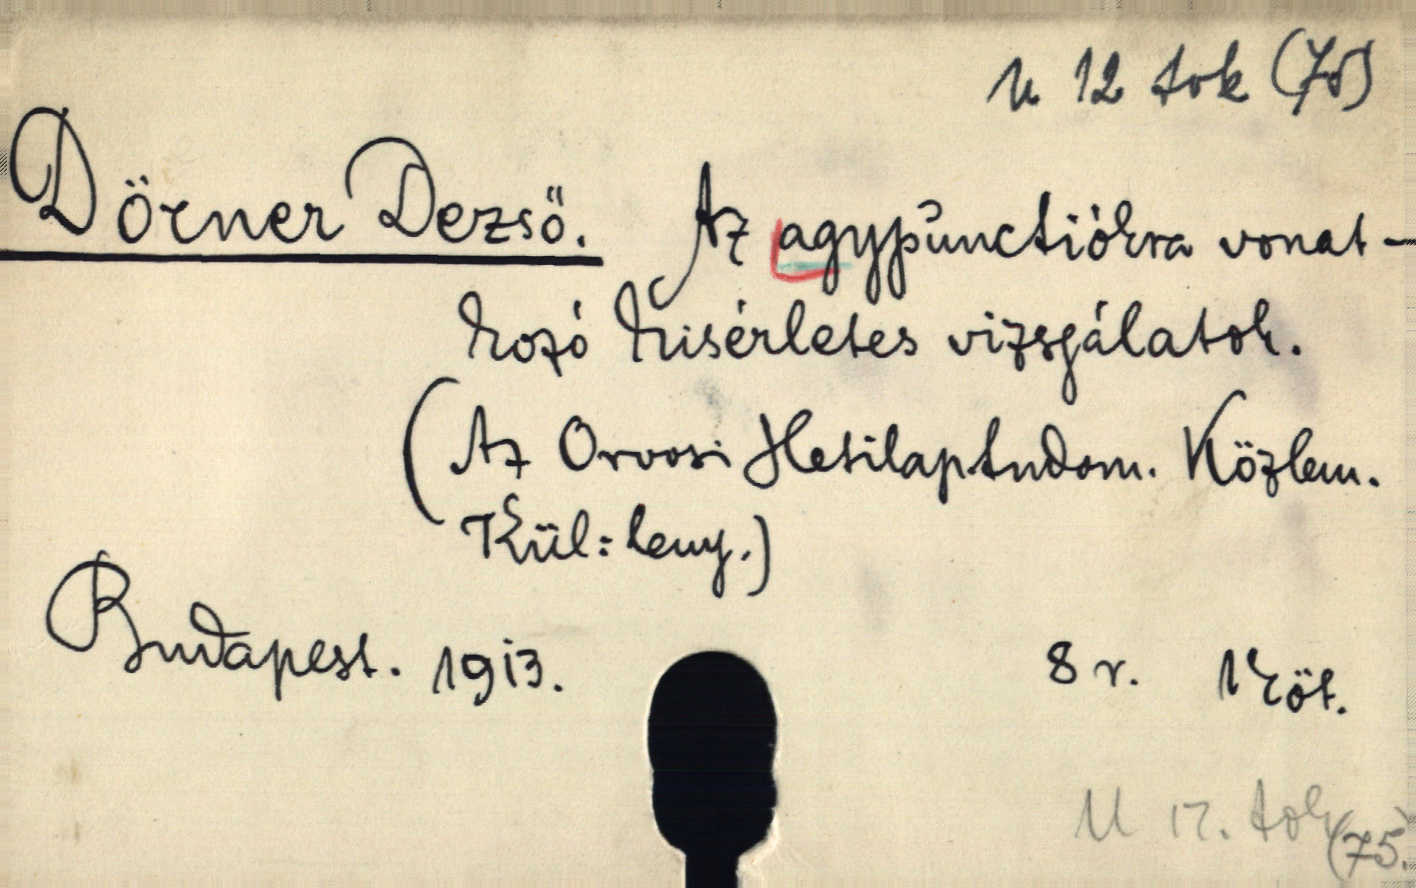 U 12 tok (75)
Dörner Dezső. Az agypunctiókra vonat-
kozó kisérletes vizsgálatok.
(Az Orvosi Hetilap tudom. Közlem.
Kül: leny.)
Budapest. 1913. 8 r. 1 köt.
U 12. tok (75.